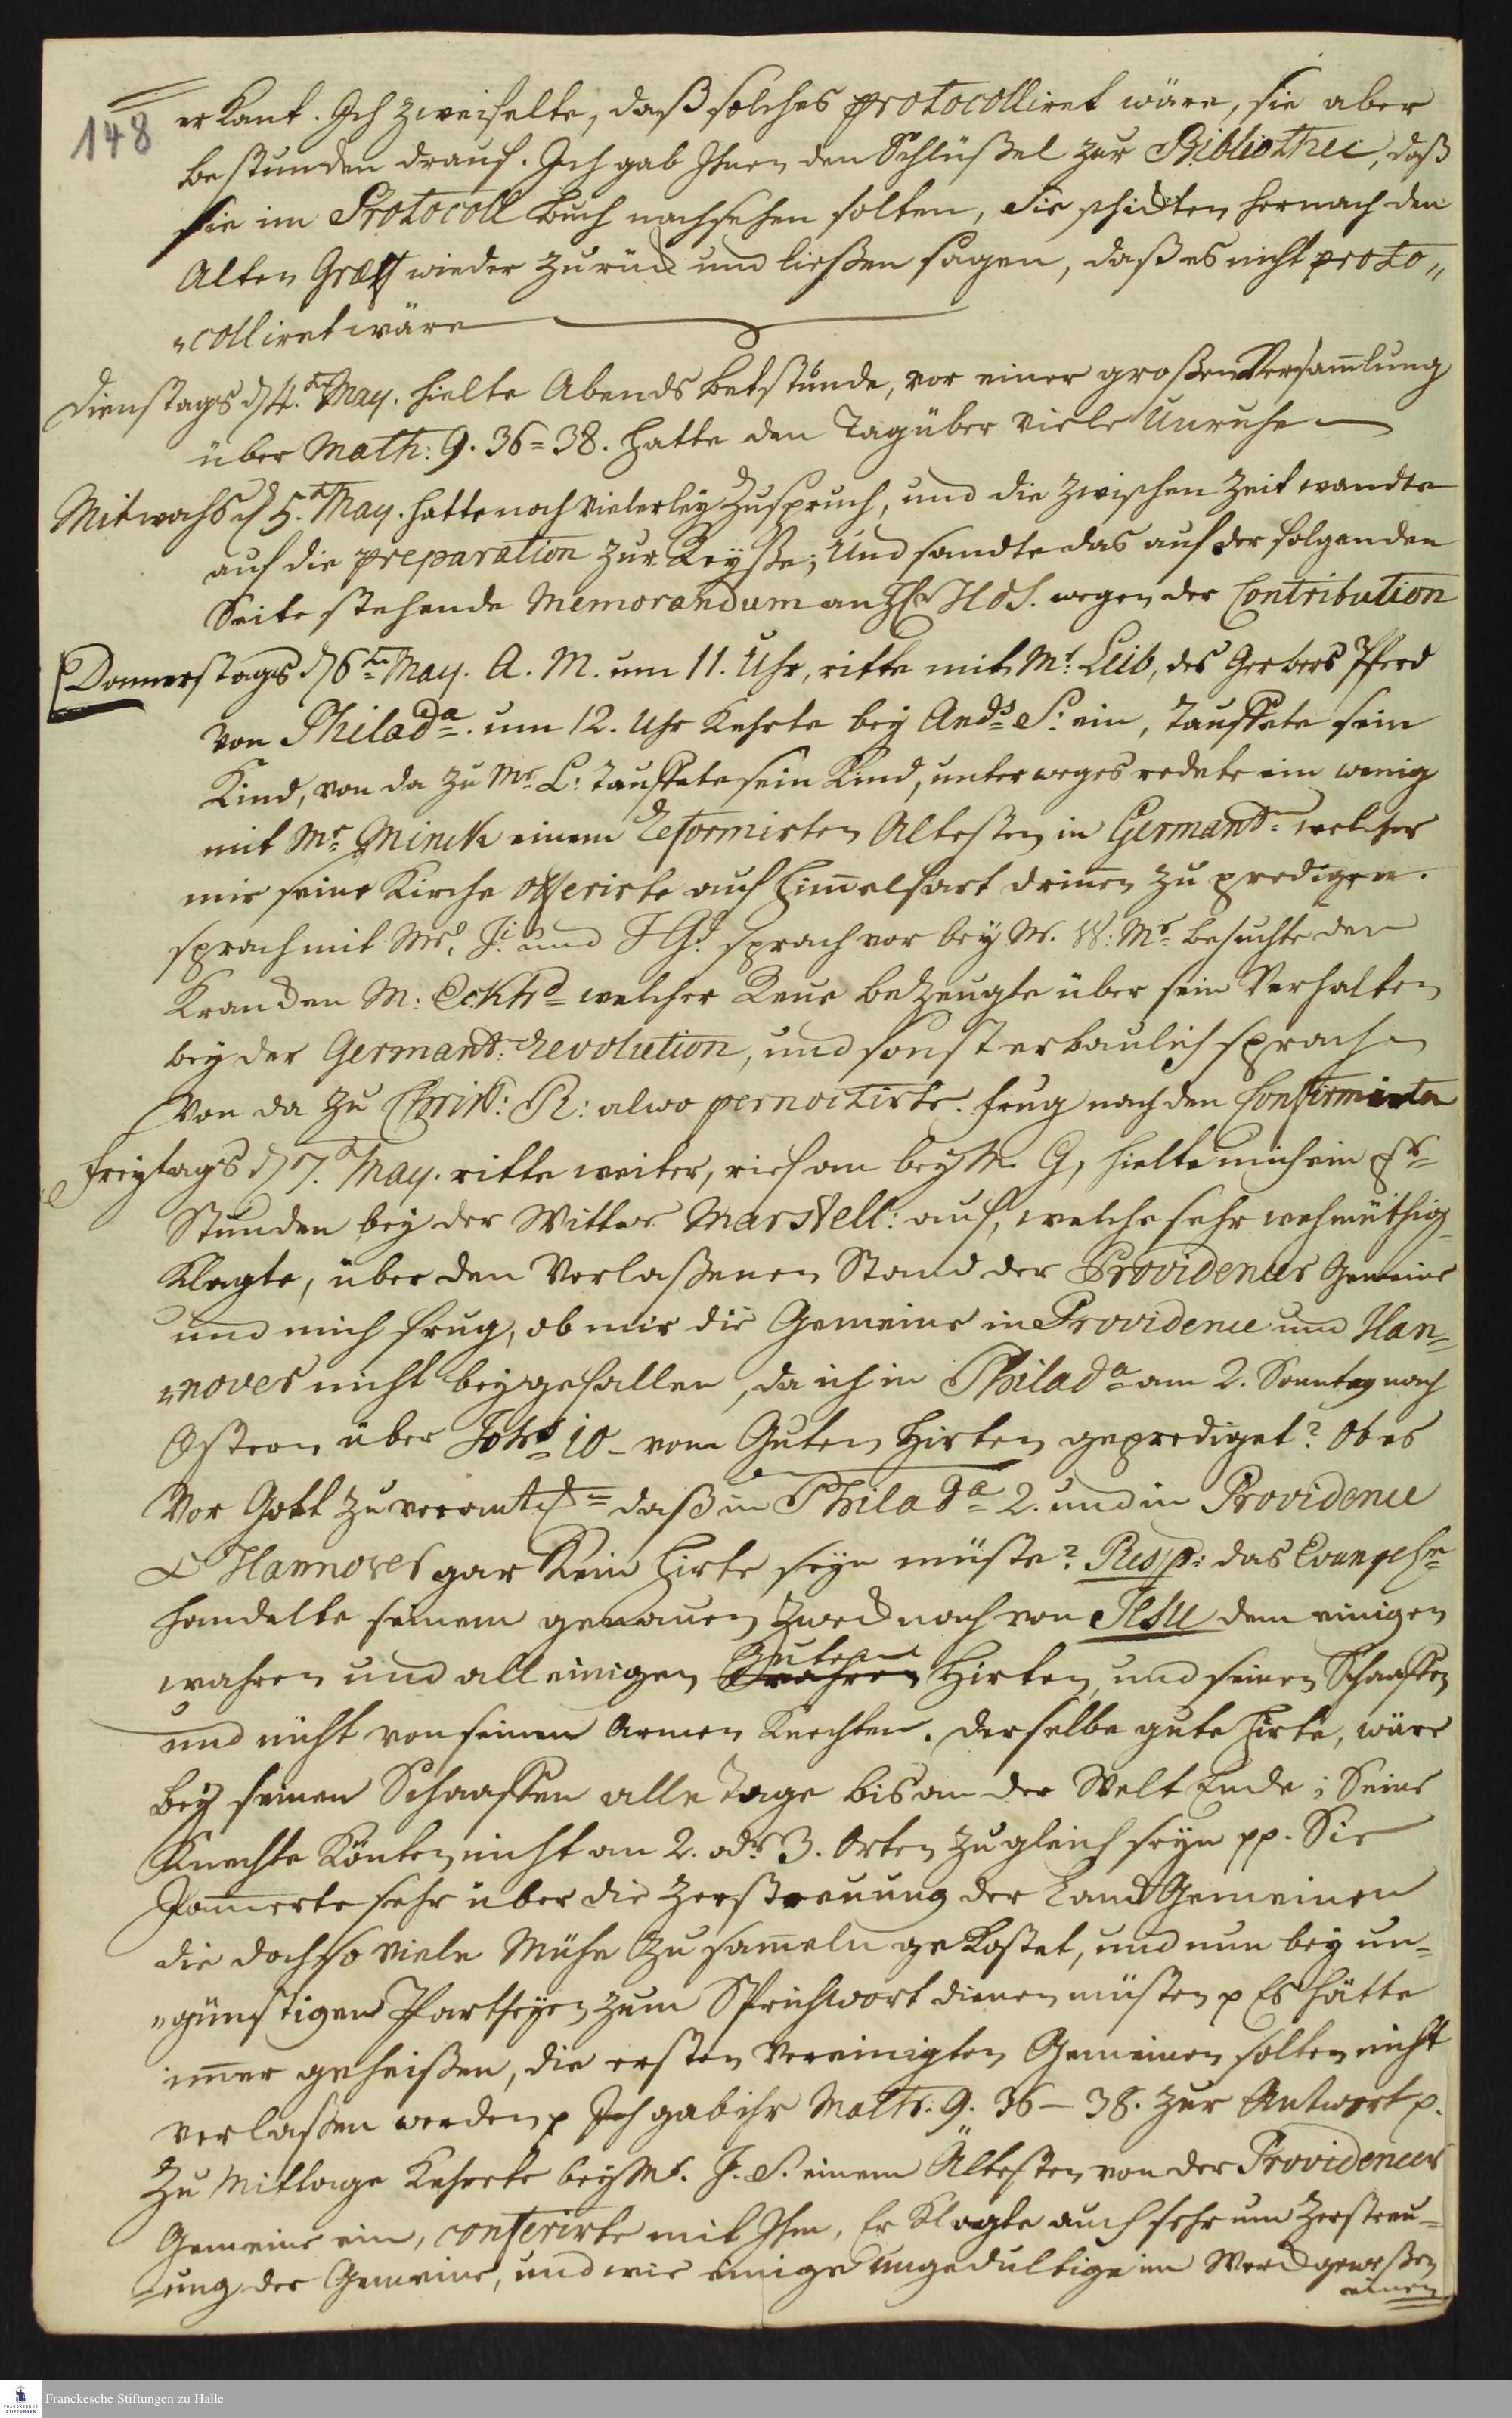 148
erkant. Ich zweifelte, daß solches protocolliret wäre, sie aber
bestunden drauf. Ich gab Ihnen den Schlüßel zur Bibliothec, daß
sie im Protocoll buch nachsehen solten, Sie schickten hernach den
Alten Græff wieder zurück und ließen sagen, daß es nicht proto„
„colliret wäre
Dienstags d 4.t May. hielte Abends Betstunde, vor einer großen Versam̄lung
über Math: 9. 36=38. hatte den Tag über viele Unruhe
Mitwochs d 5.t May. hatte noch vielerley Zuspruch, und die zwischen Zeit wandte
auf die preparation zur Reyße; Und sandte das auf der folgenden
Seite stehende Memorandum an wegen der Contribution
Donnerstags d 6ten May. A. M. um 11. Uhr, ritte mit Mr. Leib, des Gerbers Pferd
von Philada. um 12. Uhr kehrte bey Ands S: ein, Tauffete sein
Kind, von da zu Mr. L: Tauffete sein Kind, unterweges redete ein wenig
mit Mr Minck einem Reformirten Altesten in Germant. welcher
mir seine Kirche offerirte auf Him̄elfart drinnen zu predigen.
sprach mit Mrs. J: und sprach vor bey M. W: Mr. besuchte den
Krancken M: Eckhd welcher Reue bezeugte über sein Verhalten
bey der Germant: Revolution, und sonst erbaulich sprach
Von da zu Christ: R: alwo pernoctirte. frug nach den Confirmirten
Freytags d 7.t May. ritte weiter, rief an bey M. G, hielte mich ein
Stunden bey der Witwe Marstell: auf, welche sehr wehmüthig
klagte, über den Verlaßenen Stand der Providencer Gemeine
und mich frug, ob mir die Gemeine in Providence und Han„
„nover nicht beygefallen, da ich in Philada am 2. Sonntag nach
Ostern über Joh: 10 – vom Guten Hirten geprediget? Ob es
Vor Gott zu verantw daß in Philada 2. und in Providence
& Hannover gar kein Hirte seyn müste? Resp: das Evangelm
handelte seinem genauen Zweck nach von JEsu dem einigen
wahren und alleinigen wahren Guten Hirten, und seinen Schaaffen
und nicht von seinen Armen Knechten. Derselbe gute Hirte, wäre
bey seinen Schaaffen alle Tage bis an der Welt Ende; Seine
Knechte könten nicht an 2. odr 3. Orten zugleich seyn pp. Sie
Jam̄erte sehr über die Zerstreuung der Land Gemeinen
die doch so viele Mühe zu sam̄eln gekostet, und nun bey un„
„günstigen Partheyen zum Sprichwort dienen müsten p Es hätte
im̄er geheissen, die ersten Vereinigten Gemeinen solten nicht
verlassen werden p Ich gab ihr Math. 9. 36–38. zur Antwort p.
Zu Mittage kehrete bey Mr. J. S. einem Ältesten von der Providencer
Gemeine ein, conferirte mit Ihm, Er klagte auch sehr um Zerstreu„
„ung der Gemeine, und wie einige ungedultige im Werck gewesen
einen
Franckesche Stiftungen zu Halle